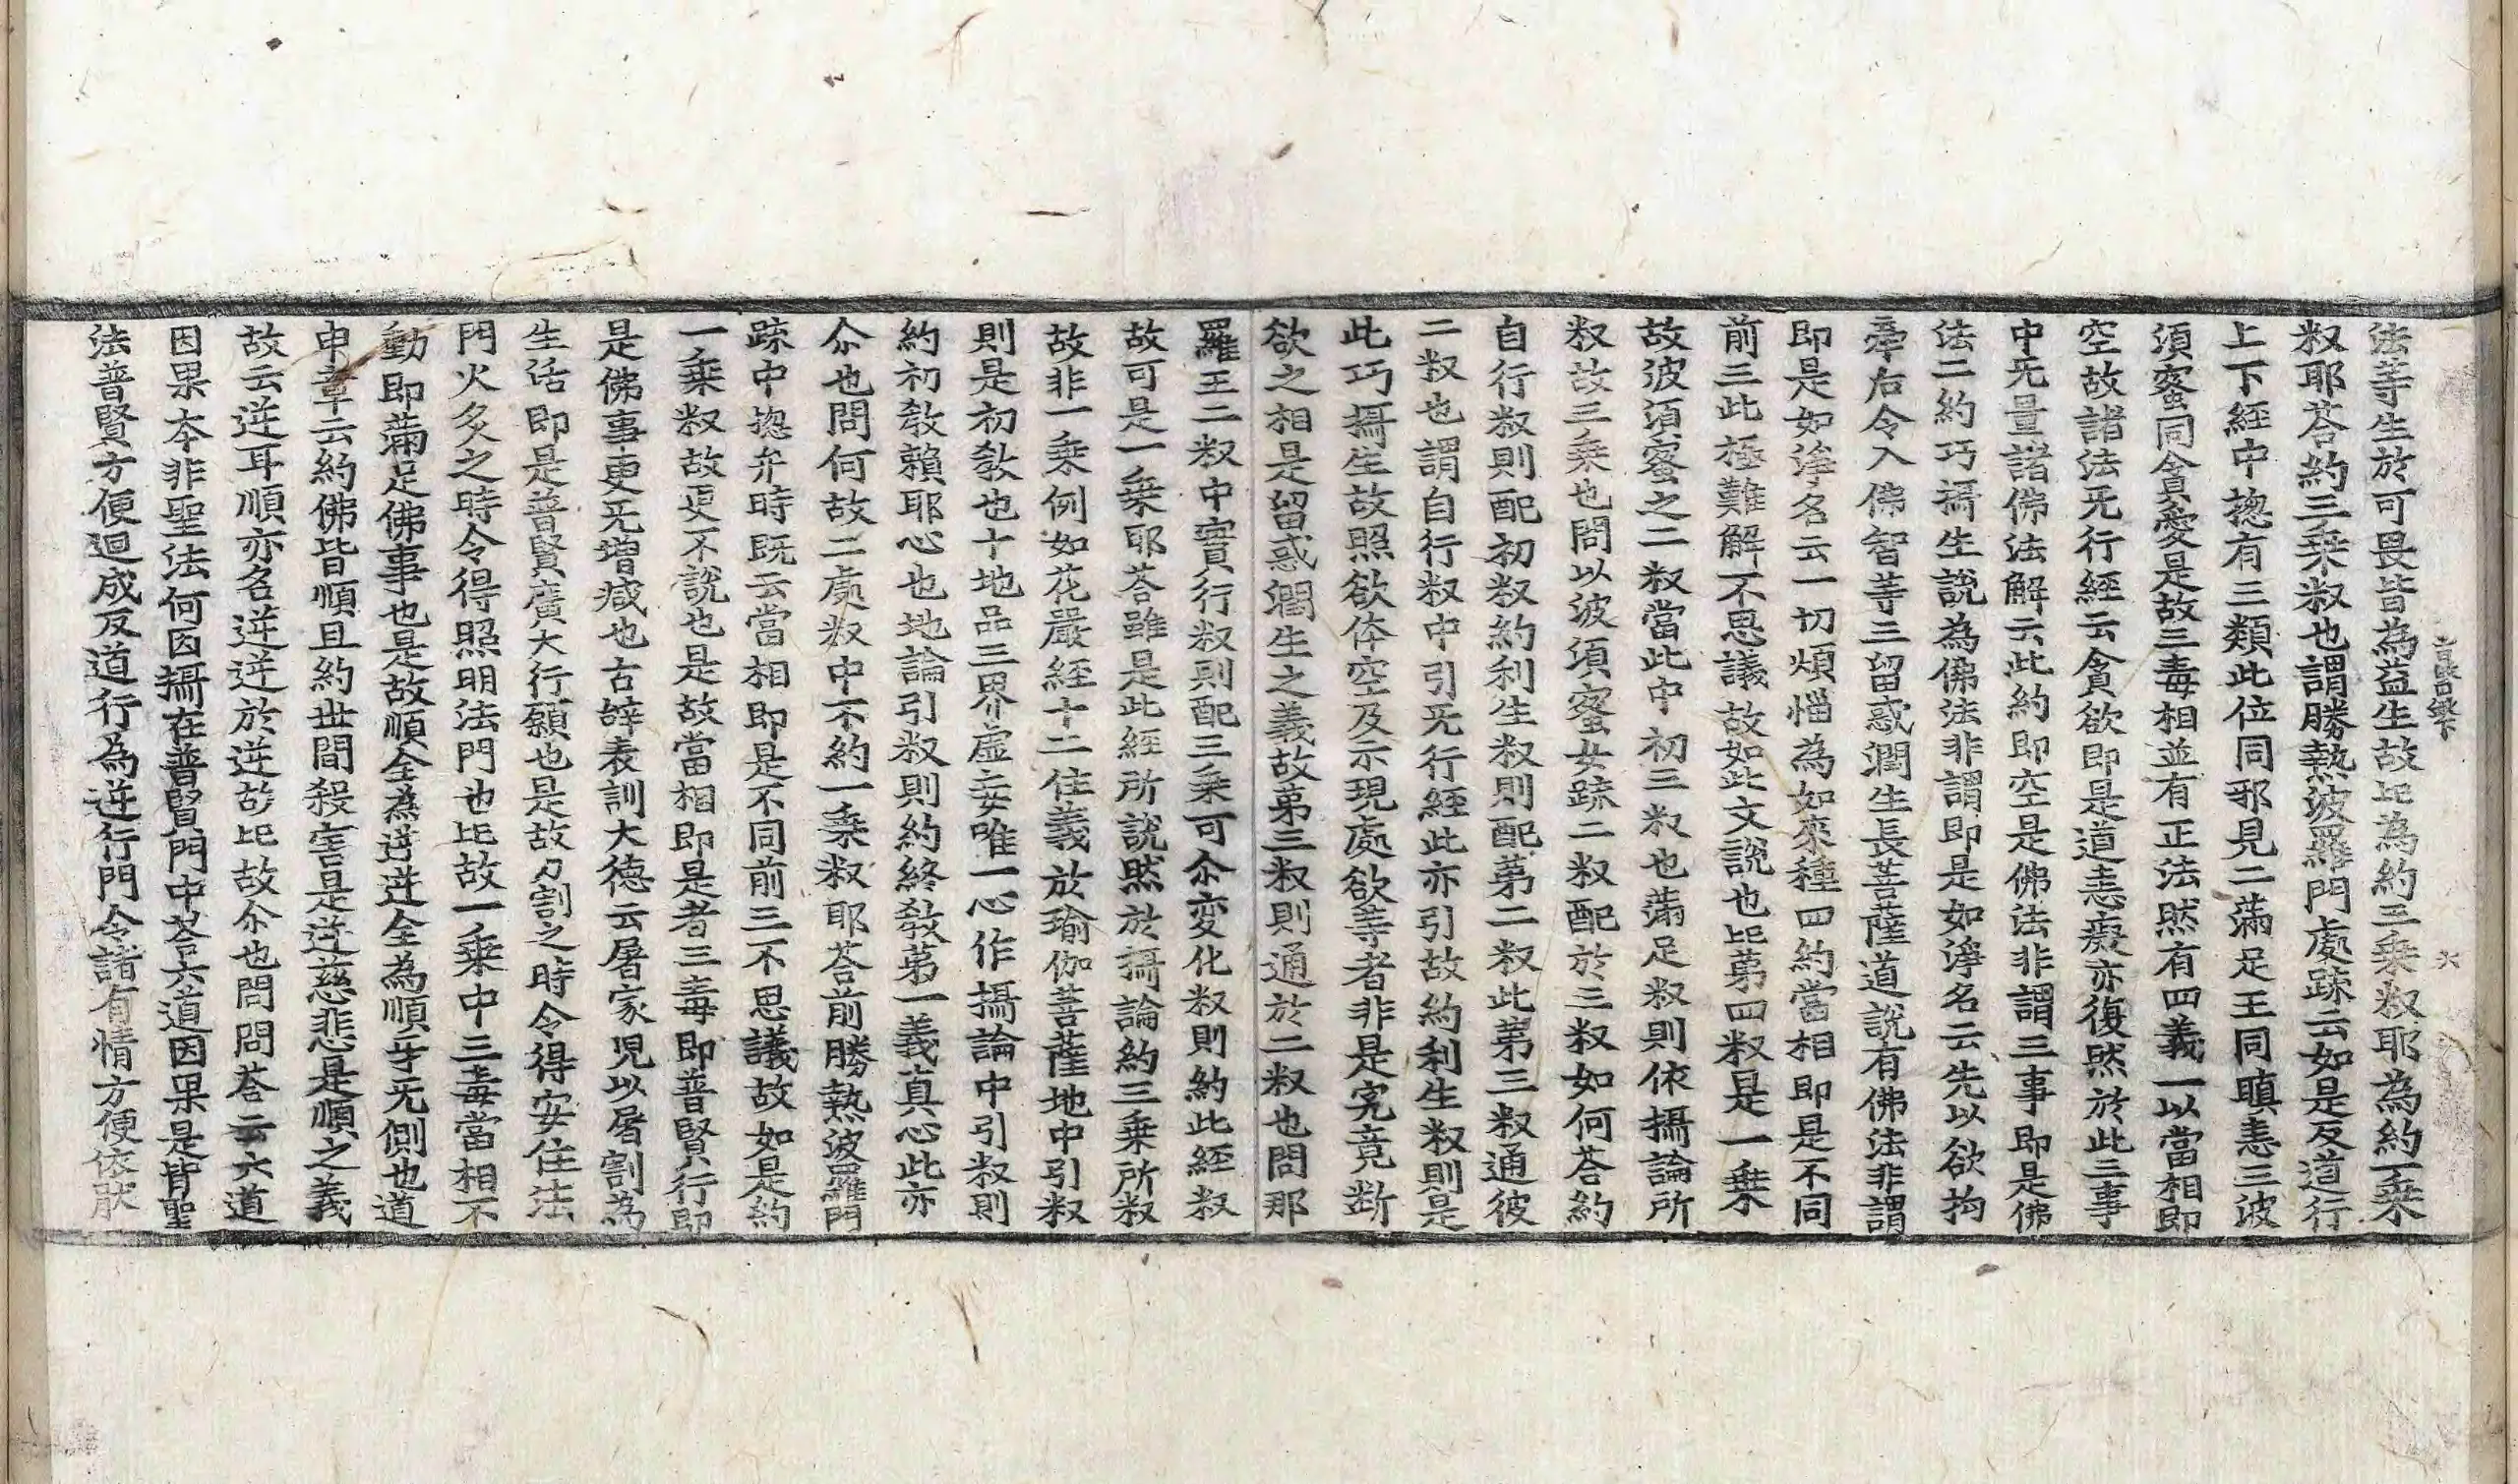 法等生於可畏皆為益生故此為約三乘权耶為約一乘
权耶荅約三乘权也謂勝熱波羅門處䟽云如是反道行
上下經中揔有三類此位同邪見二滿足王同瞋恚三波
須蜜同貪愛是故三毒相並有正法然有四義一以當相即
空故諸法无行經云貪欲即是道恚癡亦復然於此三事
中无量諸佛法解云此約即空是佛法非謂三事即是佛
法二約巧攝生說為佛法非謂即是如淨名云先以欲拘
牽右令入佛智等三留惑潤生長菩薩道說有佛法非謂
即是如淨名云一切煩惱為如來種四約當相即是不同
前三此極難解不思議故如此文說也此苐四权是一乘
故波須蜜之二权當此中初三权也滿足权則依攝論所
权故三乘也問以波須蜜女䟽二权配於三权如何荅約
自行权則配初权約利生权則配苐二权此苐三权通彼
二权也謂自行权中引无行經此亦引故約利生权則是
此巧攝生故照欲体空及示現處欲等者非是究竟断
欲之相是留惑潤生之義故苐三权則通於二权也問那
羅王二权中實行权則配三乘可尒変化权則約此經权
故可是一乘耶荅雖是此經所說然於攝論約三乘所权
故非一乘例如花嚴經十二住義於瑜伽菩薩地中引权
則是初教也十地品三界虛妄唯一心作攝論中引权則
約初教賴耶心也地論引权則約終教苐一義真心此亦
尒也問何故二處权中不約一乘权耶荅前勝熱波羅門
䟽中揔弁時既云當相即是不同前三不思議故如是約
一乘权故更不說也是故當相即是者三毒即普賢行即
是佛事更无增減也古辝表訓大德云屠家児以屠割為
生活即是普賢廣大行願也是故刀割之時令得安住法
門火炙之時令得照明法門也此故一乘中三毒當相不
動即滿足佛事也是故順全為逆逆全為順乎无側也道
申章云約佛皆順且約世間殺害是逆慈悲是順之義
故云逆耳順亦名逆逆於逆故此故尒也問問荅云六道
因果夲非聖法何因攝在普賢門中荅六道因果是背聖
法普賢方便迴成反道行為逆行門令諸有情方便依猒